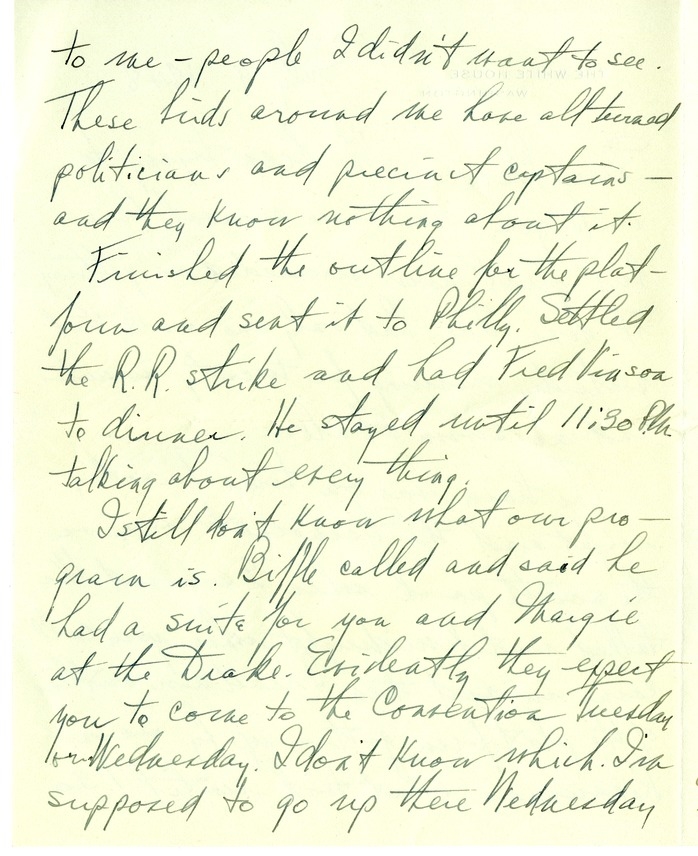 to me – people I didn't want to see.
These birds around me have all turned
politicians and precinct captains –
and they know nothing about it.
Finished the outline for the plat-
form and sent it to Philly. Settled
the R.R. strike and had Fred Vinson
to dinner. He stayed until 11:30 P.M.
talking about everything.
I still don't know what our pro-
gram is. Biffle called and said he
had a suite for you and Margie
at the Drake. Evidently they expect
you to come to the Convention Tuesday
or Wednesday. I don't know which. I'm
supposed to go up there Wednesday